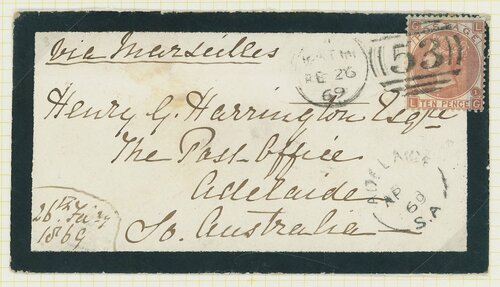 via Marseilles
FE 26
69
53
L G
TEN PENCE
Henry G. Harrington Esqre
The Post-Office
Adelaide
So. Australia
ADELAIDE
AP
69
S.A
26th
1869